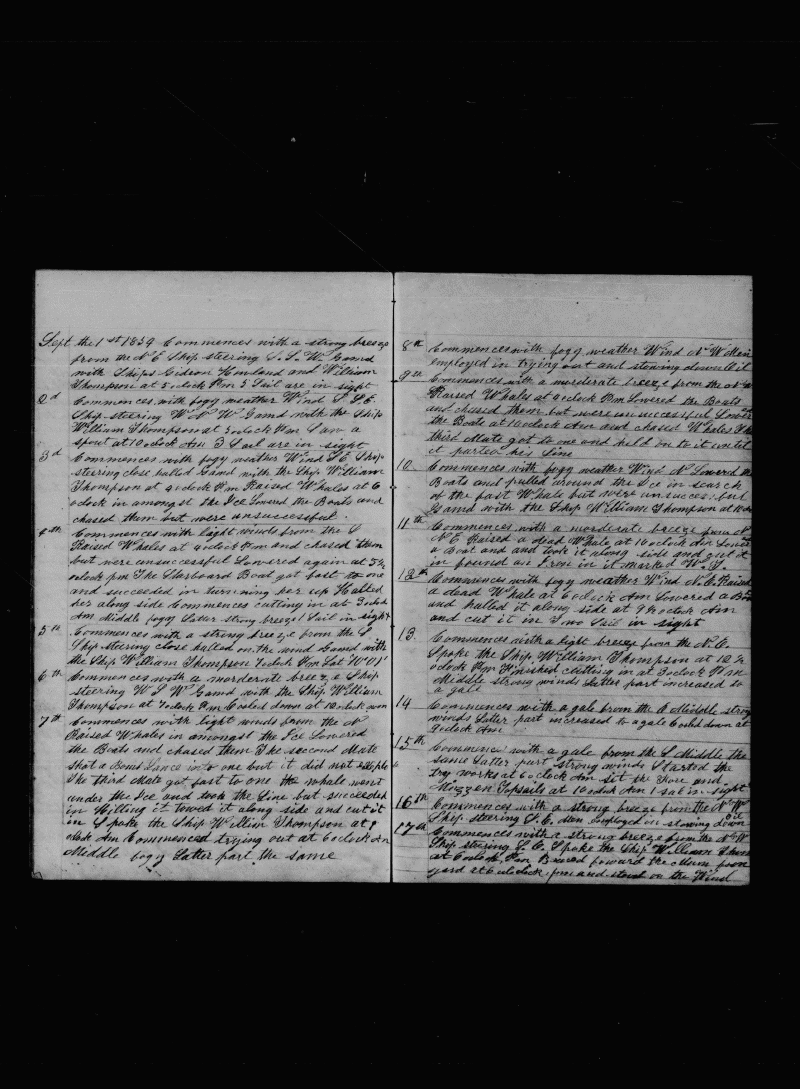 Sept the 1st 1859 Commences with a strong breeze
from the N E Ship steering S. S. W. Gamd
with Ships Gideon Howland and William
Thompson at 5 oclock Pm 5 Sail are in sight
2d Commences with fogy weather Wind S S E
Ship steering W N W Gamd with the Ship
William Thompson at 3 oclock Pm Saw a
spout at 10 oclock Am 3 Sail are in sight
3d Commences with fogy weather Wind S E Ship
stering close halled Gamd with the Ship William
Thompson at 4 oclock Pm Raised Whales at 6
oclock in amongst the Ice Lowred the Boats and
chased them but were unsuccessful
4th Commences with light winds from the S
Raised Whales at 4 oclock Pm and chased them
but were unsuccessful Lowered again at 5½
oclock pm The Starboard Boat got fast to one
and succeeded in turning her up Halled
her along side Commences cutting in at 3 oclock
Am Middle fogy Later strong breeze 1 Sail in sight
5th Commences with a strong breeze from the S
Ship steering close halled on the wind Gamed with
the Ship William Thompson 7 oclock Pm Lat
6th Commences with a morderate breeze Ship
steering W S W Gamd with the Ship William
Thompson at 7 oclock Pm Cooled down at 12 oclock
7th Commences with light winds from the N
Raised Whales in amongst the Ice Lowered
the Boats and chased them The second Mate
shot a Bomb Lance into one but it did not
The third Mate got fast to one the whale went
under the Ice and took the Line but succeeded
in Killing it towed it along side and cut it
in Spoke the Ship William Thompson at 9
oclock Am Commenced trying out at 6 oclock Am
Middle fogy Latter part the same
8th Commences with fogy weather Wind N W Men
employed in trying out and stowing down Oil
9th Commences with a morderate breeze from the N
Raised Whales at 4 oclock Pm Lowred the Boats
and chased them but were unsuccessful Lowered
the Boats at 10 oclock Am and chased Whales The
third Mate got to one and held on to it until
it parted his line
10 Commences with fogy weather Wind N Lowered the
Boats and pulled around the Ice in search
of the fast Whale but were unsucces. but
Gamd with the Ship William Thompson at 10
11th Commences with a morderate breeze from N
N E Raised a dead Whale at 10 oclock Am Lowered
a Boat and and took it along side and cut it
in found an Iron in it marked W. T.
12th Commences with fogy weather Wind N. E. Raised
a dead Whale at 6 oclock Am Lowered a Boat
and halled it along side at 9½ oclock Am
and cut it in Two Sail in sight
13 Commences with a light breeze from the N. E.
Spoke the Ship William Thompson at 12½
oclock Pm Finished cutting in at 3 oclock Pm
Middle strong winds Latter part increased to
a gale
14 Commences with a gale from the Middle strong
winds Latter part increased to a gale Cooled down at
9 oclock Am
15th Commences with a gale from the S Middle the
same Latter part strong winds Started the
try works at 6 oclock Am set the Fore and
Mizzen Topsails at 10 oclock Am 1 sail in sight
16th Commences with a strong breeze from the N W
Ship steering S. E. Men Employed in stowing down oil
17th Commences with a strong breeze from the N W
Ship steering S. E. Spoke the Ship William
at 6 oclock Pm Braced foward the Main
yard at 6 oclock pm and stood on the Wind